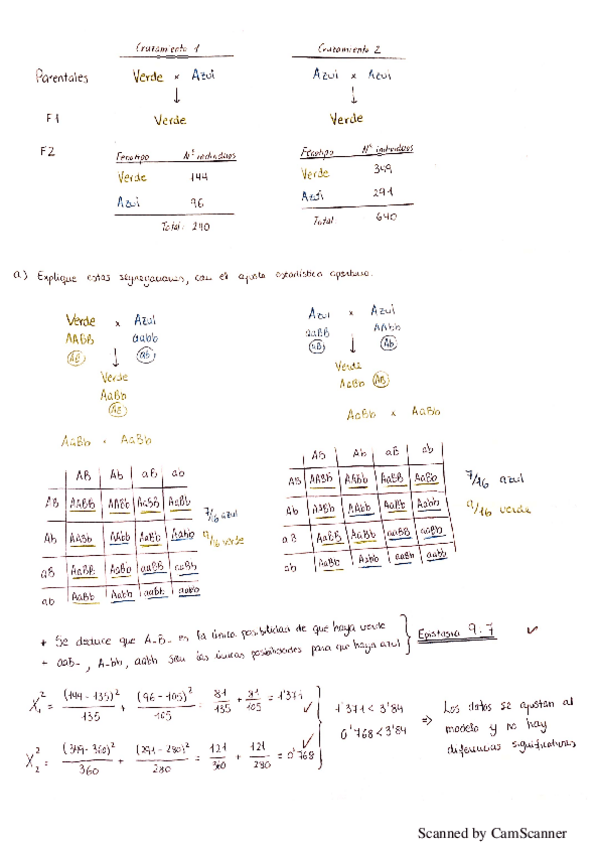 Cruzamiento 1 Cruzamiento 2
Parentales Verde x Azul Azul x Azul
F1 Verde Verde
F2 Fenotipo Nº individuos Fenotipo Nº individuos
Verde 144 Verde 349
Azul 96 Azul 291
Total: 240 Total: 640
a) Explique estas segregaciones, con el ajuste estadístico oportuno.
Verde x Azul Azul x Azul
AABB aabb aaBB AAbb
AB ab aB Ab
Verde Verde
AaBb AaBb AB
AB
AaBb x AaBb AaBb x AaBb
AB Ab aB ab AB Ab aB ab
AB AABB AABb AaBB AaBb AB AABB AABb AaBB AaBb 7/16 azul
Ab AABb AAbb AaBb Aabb 7/16 azul Ab AABb AAbb AaBb Aabb 9/16 verde
aB AaBB AaBb aaBB aaBb 9/16 verde aB AaBB AaBb aaBB aaBb
ab AaBb Aabb aaBb aabb ab AaBb Aabb aaBb aabb
+ Se deduce que A-B- es la única posibilidad de que haya verde
- aaB-, A-bb, aabb son las únicas posibilidades para que haya azul } Epistasia 9:7 ✓
X²₁ = (144-135)²/135 + (96-105)²/105 = 81/135 + 81/105 = 1'371 ✓
X²₂ = (349-360)²/360 + (291-280)²/280 = 121/360 + 121/280 = 0'768 ✓
1'371 < 3'84
0'768 < 3'84
⇒ Los datos se ajustan al
modelo y no hay
diferencias significativas
Scanned by CamScanner